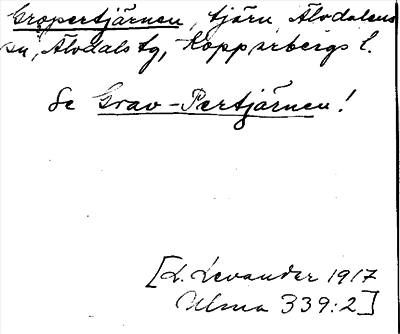 Gropertjärnen, tjärn Älvdalens
sn, Älvdals tg, Kopparbergs l.
Se Grav-Pertjärnen!
[L. Levander 1917
Ulma 339:2]